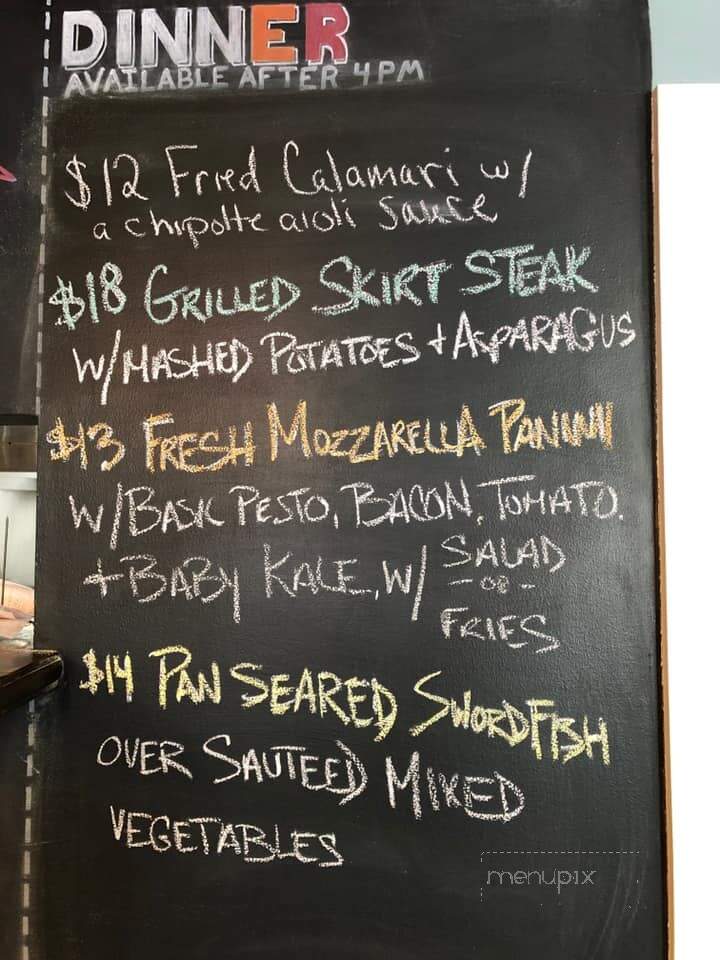 DINNER
AVAILABLE AFTER 4 PM
$12 Fried Calamari w/
a chipotle aioli Sauce
$18 GRILLED SKIRT STEAK
W/MASHED POTATOES + ASPARAGUS
$13 FRESH MOZZARELLA PANINI
W/BASIL PESTO, BACON, TOMATO.
+ BABY KALE, W/ SALAD
- OR -
FRIES
$14 PAN SEARED SWORDFISH
OVER SAUTEED MIXED
VEGETABLES
menupix